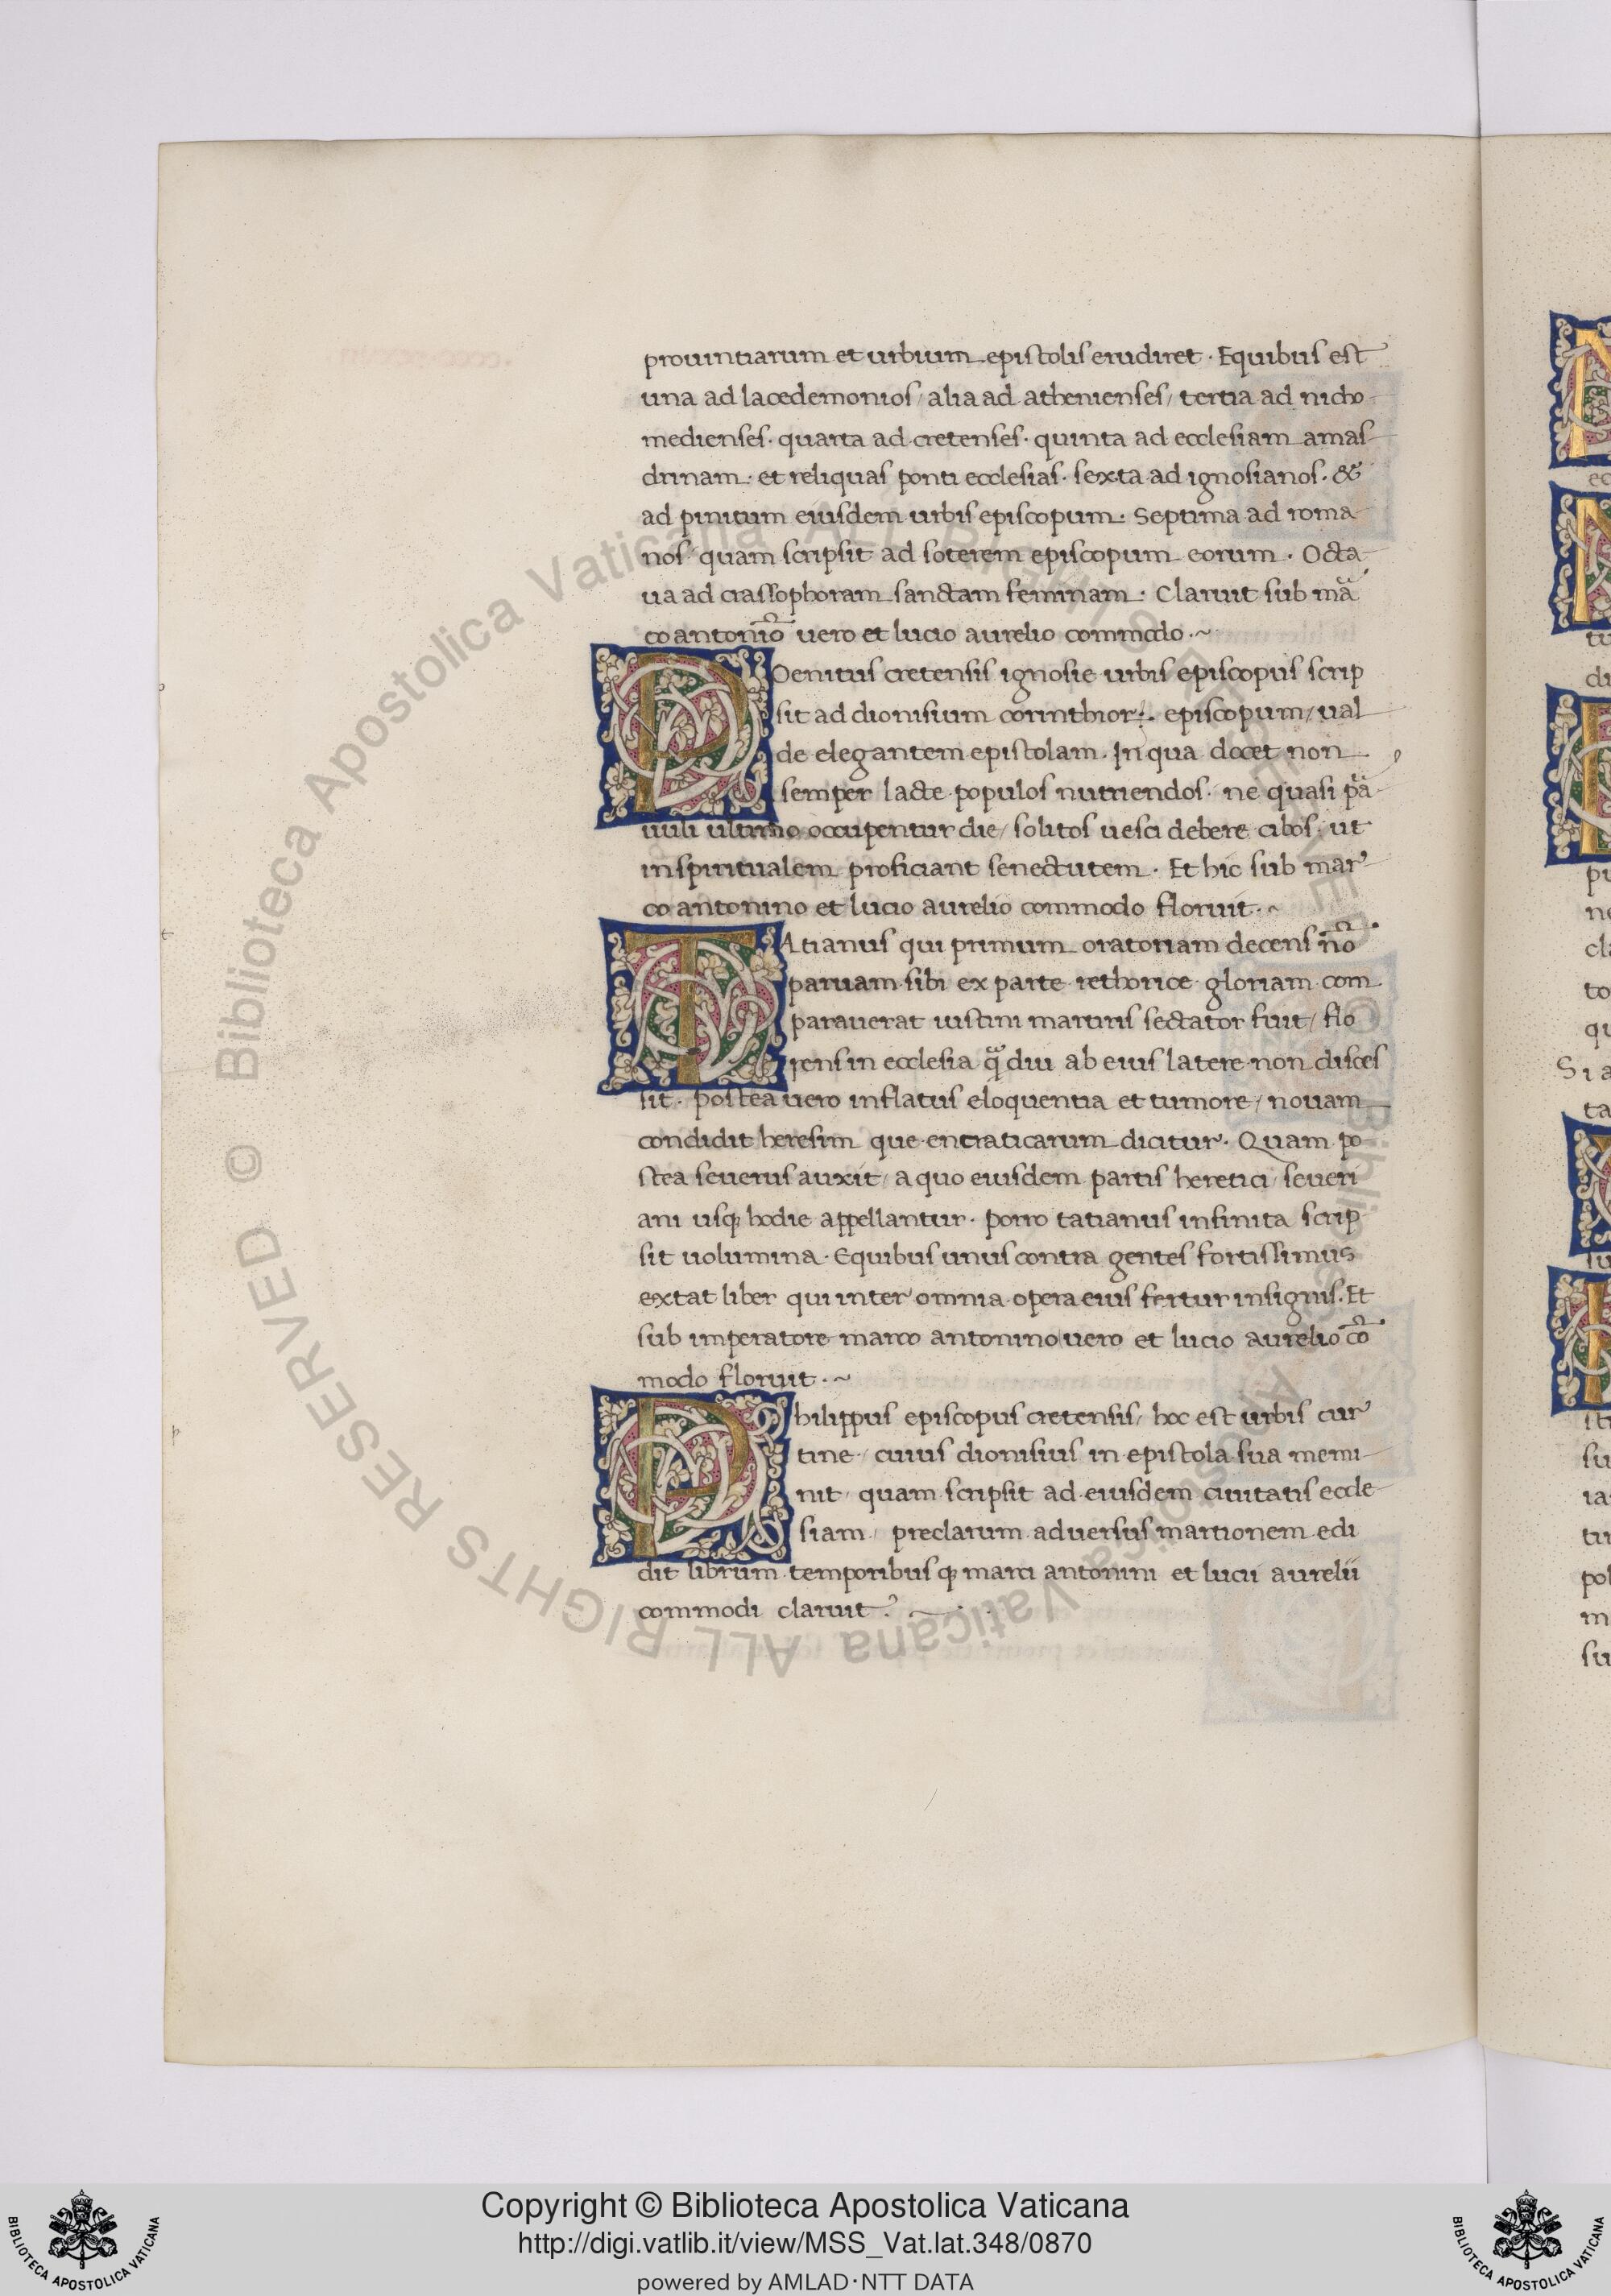 prouintiarum et urbium epistolis erudiret · Equibus est
una ad lacedemonios / alia ad athenienses / tertia ad nicho
medienses · quarta ad cretenses · quinta ad ecclesiam amas
drinam · et reliquas ponti ecclesias · sexta ad ignosianos · &
ad pinitum eiusdem urbis episcopum · Septima ad roma
nos · quam scripsit ad soterem episcopum eorum · Octa
ua ad crassophoram sanctam feminam · Claruit sub mar
co antonīo uero et lucio aurelio commodo · ~
POenitus cretensis ignosie urbis episcopus scrip
sit ad dionisium corinthior: episcopum / ual
de elegantem epistolam · In qua docet non
semper lacte populos nutriendos · ne quasi par
uuli ultimo occupentur die / solitos uesci debere cibos · ut
in spiritualem proficiant senectutem · Et hic sub mar
co antonino et lucio aurelio commodo floruit · ~
TAtianus qui primum oratoriam decens nō
paruam sibi ex parte rethorice gloriam com
parauerat iustini martiris sectator fuit / flo
rens in ecclesia qᵃdiu ab eius latere non disces
sit · postea uero inflatus eloquentia et tumore / nouam
condidit heresim que encraticarum dicitur · Quam po
stea seuerus auxit / a quo eiusdem partis heretici / seueri
ani usq; hodie appellantur · porro tatianus infinita scrip
sit uolumina · Equibus unus contra gentes fortissimus
extat liber qui inter omnia opera eius fertur insignis · Et
sub imperatore marco antonino uero et lucio aurelio cō
modo floruit · ~
Philippus episcopus cretensis / hoc est urbis cur
tine / cuius dionisius in epistola sua memi
nit / quam scripsit ad eiusdem ciuitatis eccle
siam / preclarum aduersus martionem edi
dit librum temporibusq; marci antonini et lucii aurelii
commodi claruit ·
© Biblioteca Apostolica Vaticana ALL RIGHTS RESERVED
© Biblioteca Apostolica Vaticana ALL RIGHTS RESERVED
Copyright © Biblioteca Apostolica Vaticana
http://digi.vatlib.it/view/MSS_Vat.lat.348/0870
powered by AMLAD·NTT DATA
BIBLIOTECA APOSTOLICA VATICANA
BIBLIOTECA APOSTOLICA VATICANA